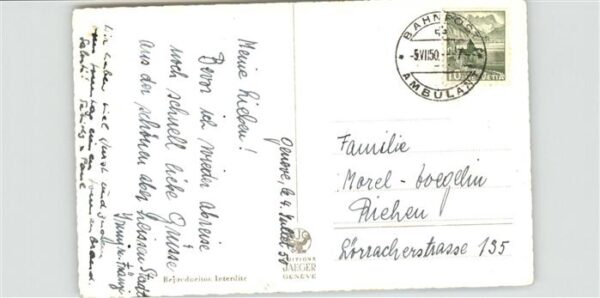 Genève, le 4. Juillet 50
Meine Lieben!
Bevor ich wieder abreise
noch schnell liebe Grüsse
aus der schönen aber heissen Stadt
Wir haben viel Durst und
EDITIONS
JAEGER
GENÈVE
Reproduction Interdite
BAHNPOST
-5.VII.50
AMBULANT
10
Familie
Morel-Voegelin
Riehen
Lörracherstrasse 135